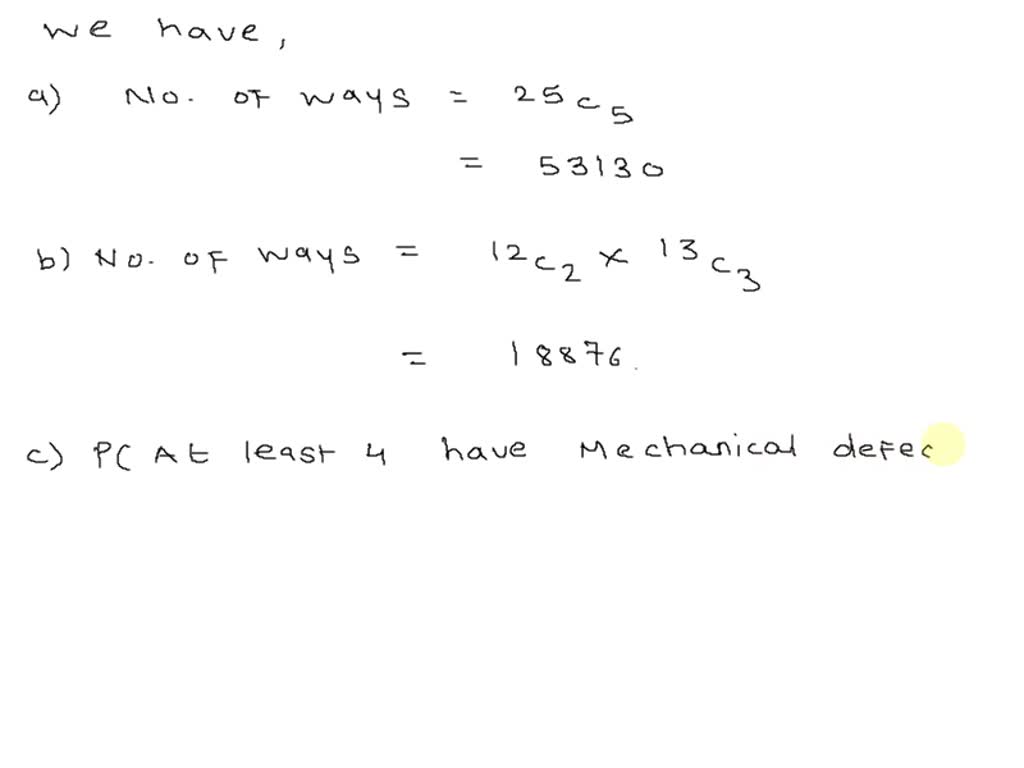 we have,
a) No. of ways = 25C5
= 53130
b) No. of ways = 12C2 × 13C3
= 18876.
c) P( At least 4 have Mechanical defec